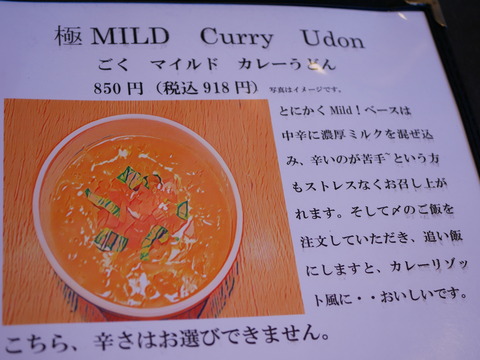 極 MILD Curry Udon
ごく マイルド カレーうどん
850円(税込918円) 写真はイメージです。
とにかくMild!ベースは
中辛に濃厚ミルクを混ぜ込
み、辛いのが苦手~という方
もストレスなくお召し上が
れます。そして〆のご飯を
注文していただき、追い飯
にしますと、カレーリゾッ
ト風に・・おいしいです。
こちら、辛さはお選びできません。